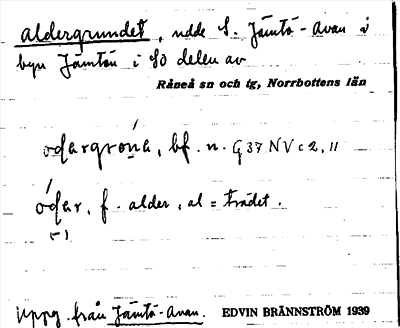 aldergrundet, udde S. Jämtö-Avan i
byn Jämtön i SO delen av
Råneå sn och tg, Norrbottens län
bf. n. G 37 NV c 2, 11
f. alder, al = trädet.
5)
Uppg. från Jämtö-Avan. EDVIN BRÄNNSTRÖM 1939